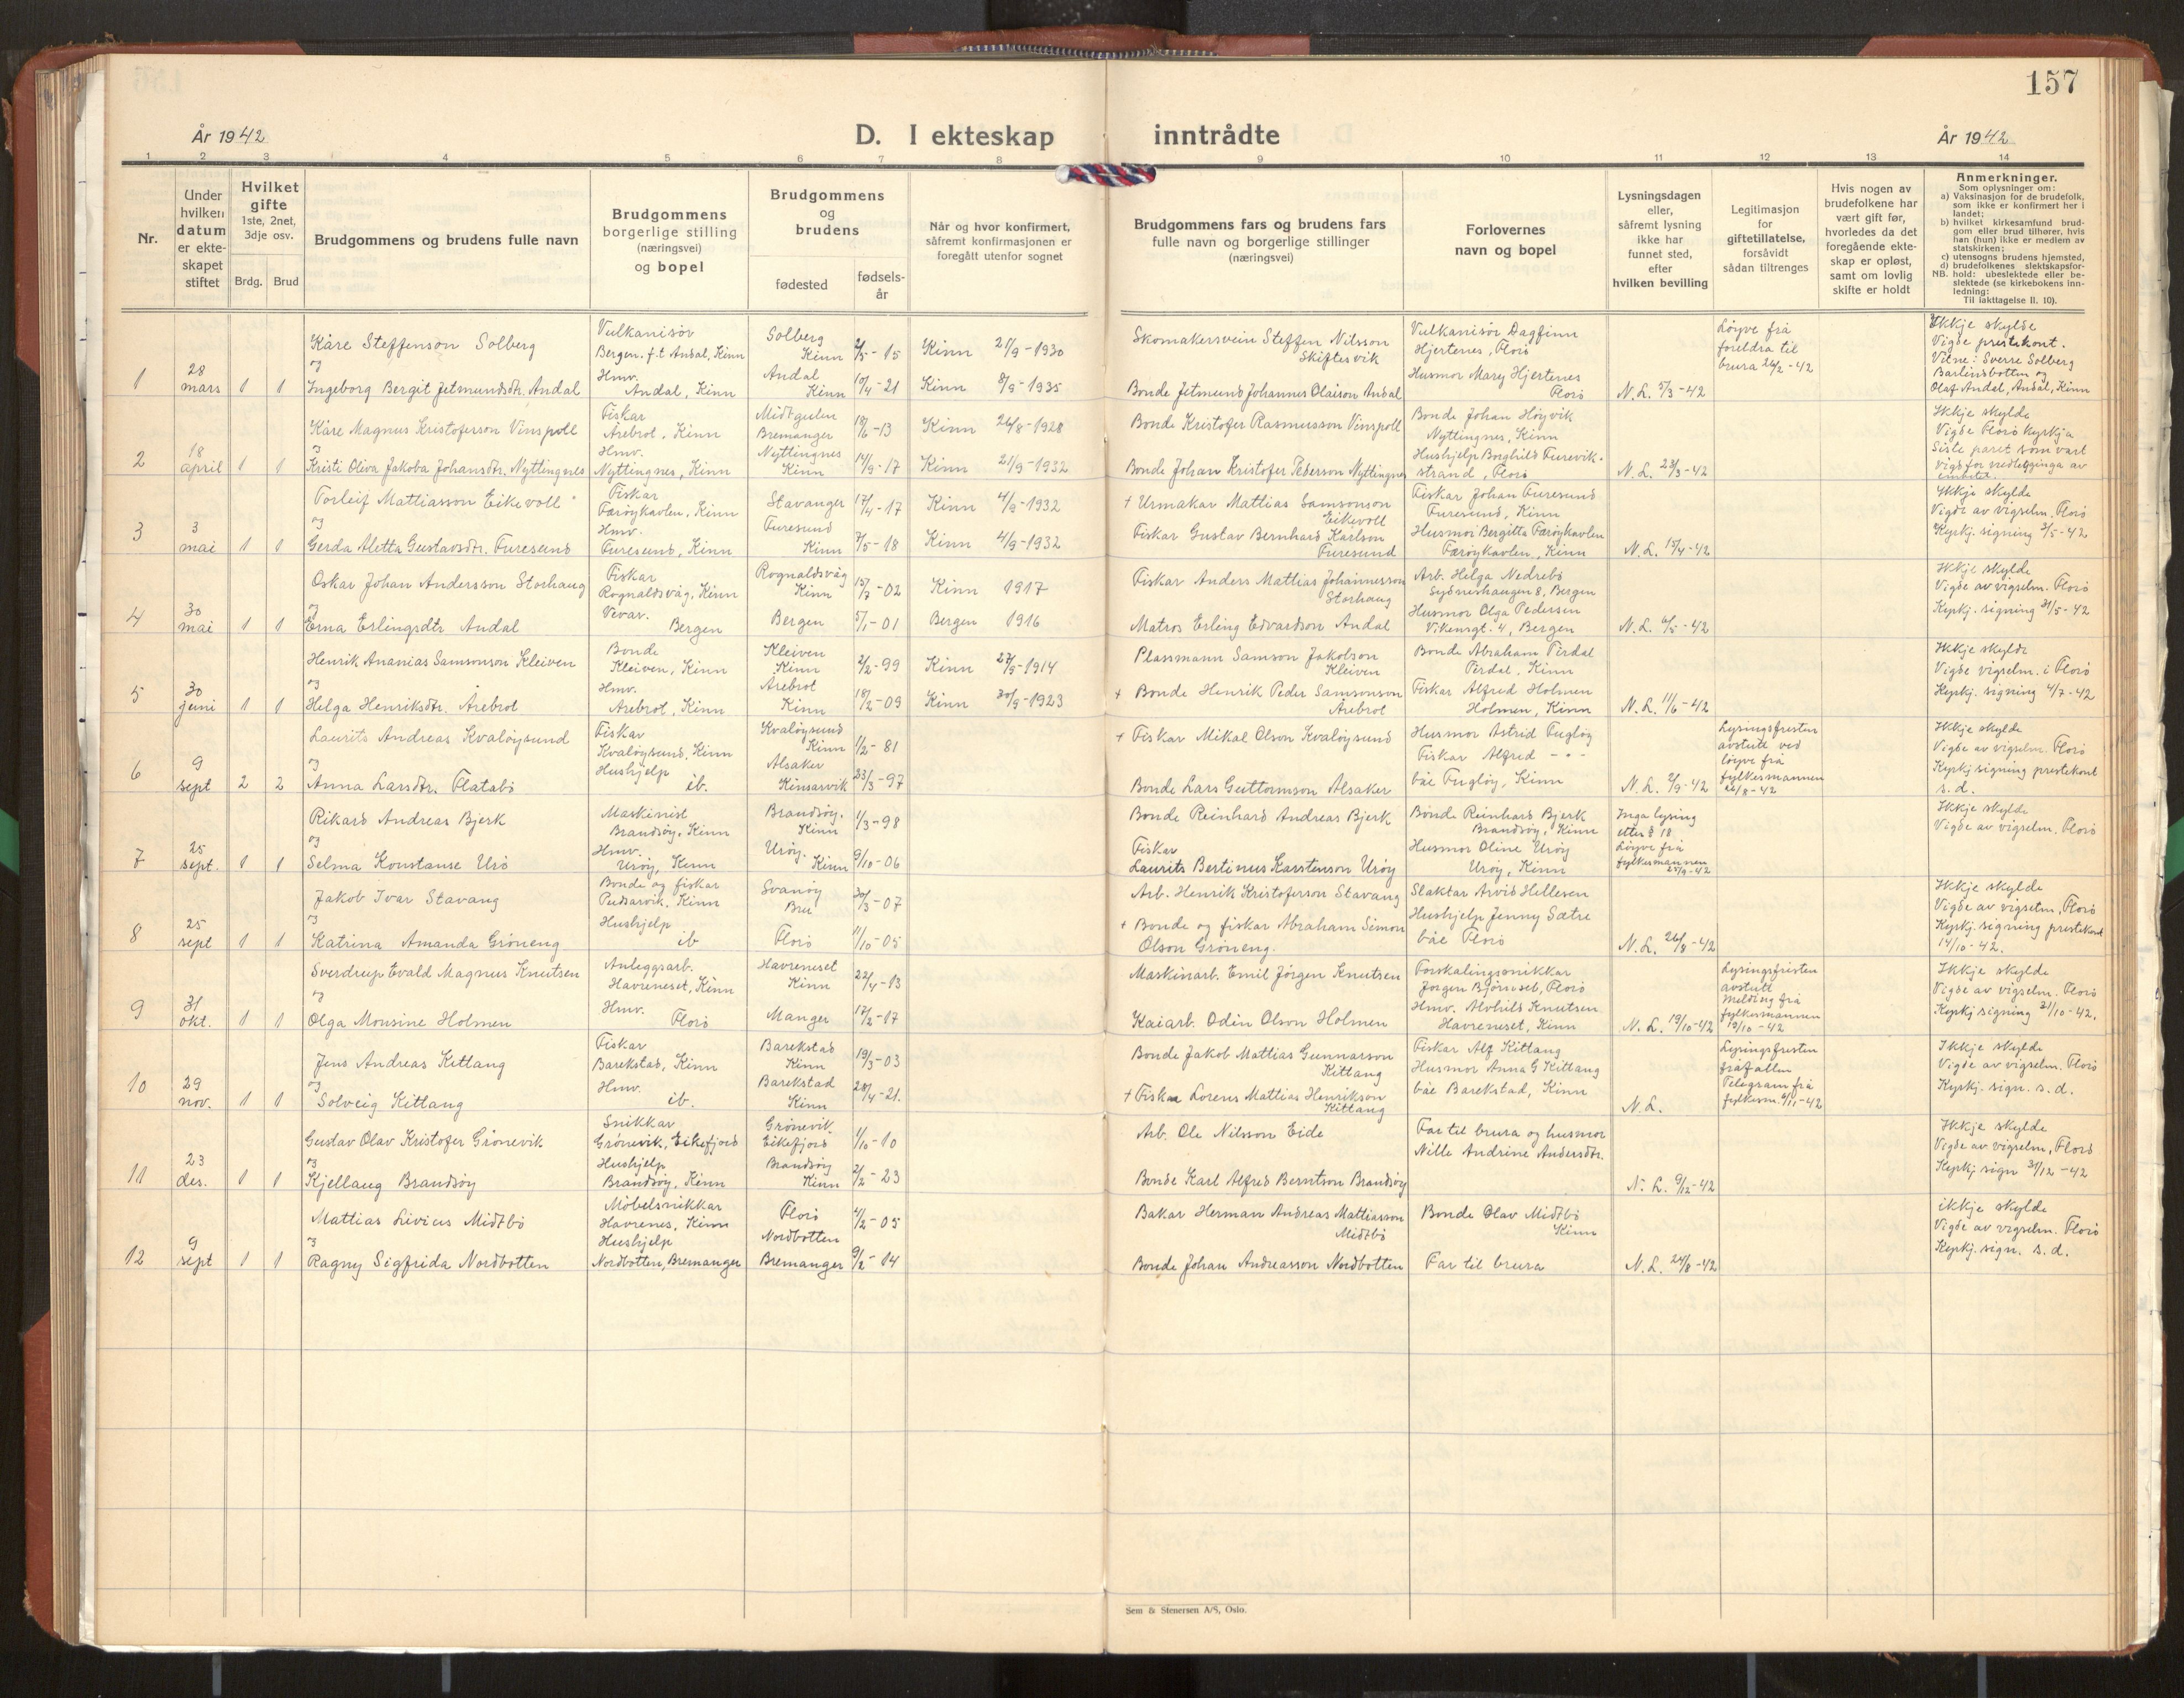 157
År 1942
D. I ekteskap inntrådte
År 1942
1 2 3 4 5 6 7 8 9 10 11 12 13 14
Nr.
Under hvilken datum er ekteskapet stiftet
Hvilket gifte 1ste, 2net, 3dje osv.
Brdg. Brud
Brudgommens og brudens fulle navn
Brudgommens borgerlige stilling (næringsvei) og bopel
Brudgommens og brudens
fødested
fødselsår
Når og hvor konfirmert, såfremt konfirmasjonen er foregått utenfor sognet
Brudgommens fars og brudens fars fulle navn og borgerlige stillinger (næringsvei)
Forlovernes navn og bopel
Lysningsdagen eller, såfremt lysning ikke har funnet sted, efter hvilken bevilling
Legitimasjon for giftetillatelse, forsåvidt sådan tiltrenges
Hvis nogen av brudefolkene har vært gift før, hvorledes da det foregående ekteskap er opløst, samt om lovlig skifte er holdt
Anmerkninger.
Som oplysninger om:
a) Vaksinasjon for de brudefolk, som ikke er konfirmert her i landet;
b) hvilket kirkesamfund brudgom eller brud tilhører, hvis han (hun) ikke er medlem av statskirken;
c) utensogns brudens hjemsted,
d) brudefolkenes slektskapsforhold: ubeslektede eller beslektede (se kirkebokens innledning:
NB.
Til iakttagelse II. 10).
1
28 mars
1 1
Kåre Steffenson Solberg
og
Ingeborg Bergit Jetmundsdtr. Andal
Vulkanisør
Bergen. f.t. Andal, Kinn
Hmv.
Andal, Kinn
Solberg
Kinn
Andal
Kinn
- 15
10/4 - 21
Kinn 21/9 - 1930
Kinn 8/9 - 1935
Skomakersvein Steffen Nilsson
Skiftesvik
Bonde Jetmund Johannes Olaison Andal
Vulkanisør Dagfinn
Hjertenes, Florø
Husmor Mary Hjertenes
Florø
N. L. 5/3 - 42
Løyve frå
foreldra til
brura 26/2 - 42
Ikkje skylde
Vigde prestekont.
Vitne: Sverre Solberg
Barlindsbotten og
Olaf Andal, Andal, Kinn
2
18 april
1 1
Kåre Magnus Kristoferson Vinspoll
og
Kristi Oliva Jakoba Johansdtr. Nyttingnes
Fiskar
Årebrot, Kinn
Hmv.
Nyttingnes, Kinn
Midtgulen
Bremanger
Nyttingnes
Kinn
18/6 - 13
14/9 - 17
Kinn 26/8 - 1928
Kinn 21/9 - 1932
Bonde Kristofer Rasmusson Vinspoll
Bonde Johan Kristofer Pederson Nyttingnes
Bonde Johan Høyvik
Nyttingnes, Kinn
Hushjelp Borghild Furevik-
strand, Florø
N. L. 23/3 - 42
Ikkje skylde
Vigde Florø kyrkja
Siste paret som vart
vigd for nedlegginga av
embetet.
3
3 mai
1 1
Torleif Mattiasson Eikevoll
og
Gerda Aletta Gustavsdtr. Furesund
Fiskar
Færøykavlen, Kinn
Hmv.
Furesund, Kinn
Stavanger
Furesund
Kinn
17/4 - 17
7/5 - 18
Kinn 4/9 - 1932
Kinn 4/9 - 1932
+ Urmakar Mattias Samsonson
Eikevoll
Fiskar Gustav Bernhard Karlson
Furesund
Fiskar Johan Furesund
Furesund, Kinn
Husmor Bergitta Færøykavlen
Færøykavlen, Kinn
N. L. 15/4 - 42
Ikkje skylde
Vigde av vigselm. Florø
Kyrkj. signing 3/5 - 42
4
30 mai
1 1
Oskar Johan Andersson Storhaug
og
Erna Erlingsdtr Andal
Fiskar
Rognaldsvåg, Kinn
Vevar.
Bergen
Rognaldsvåg
Kinn
Bergen
15/7 - 02
5/1 - 01
Kinn 1917
Bergen 1916
Fiskar Anders Mattias Johannesson
Storhaug
Matros Erling Edvardson Andal
Arb. Helga Nedrebø
Sydneshaugen 8, Bergen
Husmor Olga Pedersen
Vikensgt. 4, Bergen
N. L. 6/5 - 42
Ikkje skylde
Vigde av vigselm. Florø
Kyrkj. signing 31/5 - 42
5
30 juni
1 1
Henrik Ananias Samsonson Kleiven
og
Helga Henriksdtr. Årebrot
Bonde
Kleiven, Kinn
Hmv.
Årebrot, Kinn
Kleiven
Kinn
Årebrot
Kinn
2/2 - 99
18/2 - 09
Kinn 27/9 - 1914
Kinn 30/9 - 1923
Plassmann Samson Jakobson
Kleiven
+ Bonde Henrik Peder Samsonson
Årebrot
Bonde Abraham Tirdal
Tirdal, Kinn
Fiskar Alfred Holmen
Holmen, Kinn
N. L. 11/6 - 42
Ikkje skylde
Vigde vigselm. i Florø
Kyrkj. signing 4/7 - 42
6
9 sept
2 2
Laurits Andreas Kvaløysund
og
Anna Larsdtr. Flatabø
Fiskar
Kvaløysund, Kinn
Hushjelp
ib.
Kvaløysund
Kinn
Alsaker
Kinsarvik
1/2 - 81
23/3 - 97
+ Fiskar Mikal Olson Kvaløysund
Bonde Lars Guttormson Alsaker
Husmor Astrid Fugløy
Fiskar Alfred - " -
båe Fugløy, Kinn
N. L. 2/9 - 42
Lysingsfristen
avstutt ved
løyve frå
fylkesmannen
26/8 - 42
Ikkje skylde
Vigde av vigselm. Florø
Kyrkj signing prestekont
s. d.
7
25 sept.
1 1
Rikard Andreas Bjerk
og
Selma Konstanse Urø
Maskinist
Brandsøy, Kinn
Hmv.
Urøy, Kinn
Brandsøy,
Kinn
Urøy
Kinn
1/3 - 98
9/10 - 06
Bonde Reinhard Andreas Bjerk
Fiskar
Laurits Bertinus Karstenson Urøy
Bonde Reinhard Bjerk
Brandsøy, Kinn
Husmor Oline Urøy
Urøy, Kinn
Inga lysing
etter § 18
Løyve frå
fylkesmannen
25/9 - 42
Ikkje skylde
Vigde av vigselm. Florø
8
25 sept
1 1
Jakob Ivar Stavang
og
Katrina Amanda Grøneng
Bonde og fiskar
Pudsarvik, Kinn
Hushjelp
ib
Svanøy
Bru
Florø
30/3 - 07
11/10 - 05
Arb. Henrik Kristoferson Stavang
+ Bonde og fiskar Abraham Simon
Olson Grøneng.
Slaktar Arvid Hellesen
Hushjelp Jenny Sætre
båe Florø
N. L. 26/8 - 42
Ikkje skylde
Vigde av vigselm, Florø
Kyrkj. signing prestekont
14/10 - 42.
9
31 okt.
1 1
Sverdrup Evald Magnus Knutsen
og
Olga Monsine Holmen
Anleggsarb.
Havreneset, Kinn
Hmv.
Florø
Havreneset
Kinn
Manger
22/4 - 13
17/2 - 17
Maskinarb. Emil Jørgen Knutsen
Kaiarb. Odin Olson Holmen
Forskalingssnikkar
Jørgen Bjørnset, Florø
Hmv. Alvhild Knutsen
Havreneset, Kinn
N. L. 19/10 - 42
Lysingsfristen
avstutt
Melding frå
fylkesmannen
19/10 - 42
Ikkje skylde
Vigde av vigselm. Florø
Kyrkj signing 31/10 - 42.
10
29 nov.
1 1
Jens Andreas Kittang
og
Solveig Kittang
Fiskar
Barekstad, Kinn
Hmv.
ib.
Barekstad
Kinn
Barekstad
Kinn
19/3 - 03
28/4 - 21.
Bonde Jakob Mattias Gunnarson
Kittang
+ Fiskar Lorens Mattias Henrikson
Kittang
Fiskar Alf Kittang
Husmor Anna G Kittang
båe Barekstad, Kinn
N. L.
Lysingsfristen
fråfallen
Telegram frå
fylkesm. 6/11 - 42
Ikkje skylde
Vigde av vigselm. Florø
Kyrkj. sign. s. d.
11
23 des.
1 1
Gustav Olav Kristofer Grønevik
og
Kjellaug Brandsøy
Snikkar
Grønevik, Eikefjord
Hushjelp
Brandsøy, Kinn
Grønevik
Eikefjord
Brandsøy
Kinn
1/10 - 10
2/2 - 23
Arb. Ole Nilsson Eide
Bonde Karl Alfred Berntson Brandsøy
Far til brura og husmor
Nille Andrine Andersdtr.
N. L. 9/12 - 42
Ikkje skylde
Vigde av vigselm, Florø
Kyrkj. sign 31/12 - 42
12
9 sept
1 1
Mattias Livius Midtbø
og
Ragny Sigfrida Nordbotten
Møbelsnikkar
Havrenes, Kinn
Hushjelp
Nordbotten, Bremanger
Florø
Nordbotten
Bremanger
4/2 - 05
9/2 - 14
Bakar Herman Andreas Mattiasson
Midtbø
Bonde Johan Andreasson Nordbotten
Bonde Olav Midtbø
Kinn
Far til brura
N. L. 24/8 - 42
ikkje skylde
Vigde av vigselm. Florø
Kyrkj. sign. s. d.
Sem & Stenersen A/S, Oslo.